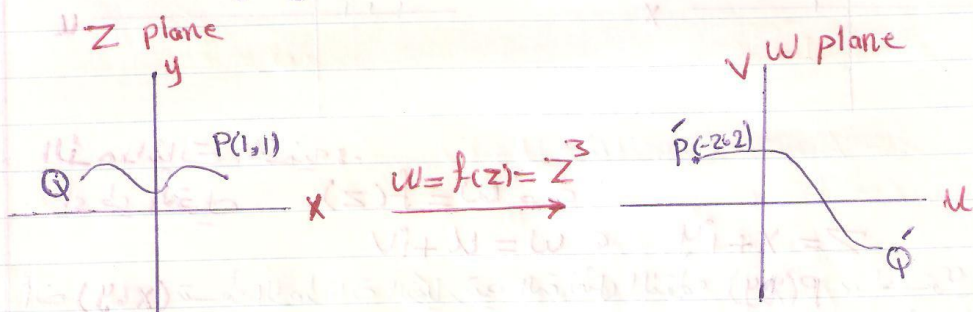 Z plane
y
P(1,1)
Q
x
w = f(z) = Z³
V W plane
P´(-2,2)
u
Q´